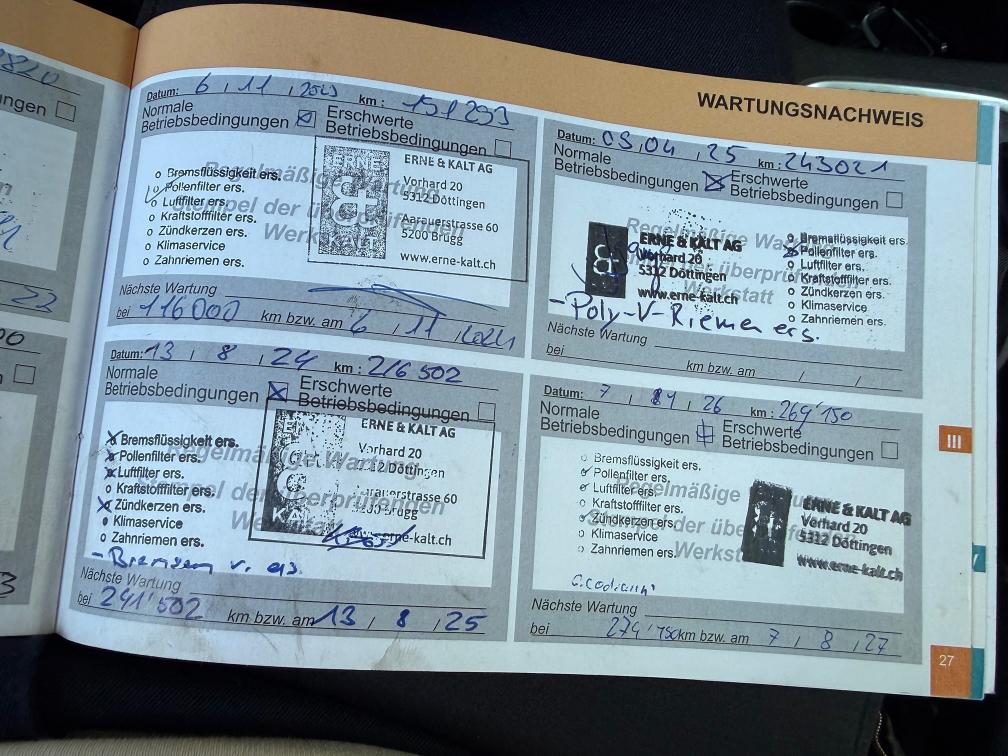 WARTUNGSNACHWEIS
Datum: 6 / 11 / 2023 km:
Normale Betriebsbedingungen
Erschwerte Betriebsbedingungen
Regelmäßige Wartung
Stempel der überprüfenden
Werkstatt
Bremsflüssigkeit ers.
Pollenfilter ers.
Luftfilter ers.
Kraftstofffilter ers.
Zündkerzen ers.
Klimaservice
Zahnriemen ers.
ERNE & KALT
ERNE & KALT AG
Vorhard 20
5312 Döttingen
Aarauerstrasse 60
5200 Brugg
www.erne-kalt.ch
Nächste Wartung
bei 116000 km bzw. am 6 / 11 /
Datum: 13 / 8 / 24 km: 216 502
Normale Betriebsbedingungen
Erschwerte Betriebsbedingungen
Regelmäßige Wartung
Stempel der überprüfenden
Werkstatt
Bremsflüssigkeit ers.
Pollenfilter ers.
Luftfilter ers.
Kraftstofffilter ers.
Zündkerzen ers.
Klimaservice
Zahnriemen ers.
ERNE & KALT AG
Vorhard 20
5312 Döttingen
Aarauerstrasse 60
5200 Brugg
www.erne-kalt.ch
- Bremsen v. ers.
Nächste Wartung
bei 241'502 km bzw. am 13 / 8 / 25
Datum: 03 / 04 / 25 km: 243021
Normale Betriebsbedingungen
Erschwerte Betriebsbedingungen
Regelmäßige Wartung
Stempel der überprüfenden
Werkstatt
ERNE & KALT AG
Vorhard 20
5312 Döttingen
www.erne-kalt.ch
Bremsflüssigkeit ers.
Pollenfilter ers.
Luftfilter ers.
Kraftstofffilter ers.
Zündkerzen ers.
Klimaservice
Zahnriemen ers.
- Poly-V-Riemen ers.
Nächste Wartung
bei km bzw. am / /
Datum: 7 / / 26 km: 269'150
Normale Betriebsbedingungen
Erschwerte Betriebsbedingungen
Regelmäßige
Stempel der
Werkstatt
Bremsflüssigkeit ers.
Pollenfilter ers.
Luftfilter ers.
Kraftstofffilter ers.
Zündkerzen ers.
Klimaservice
Zahnriemen ers.
ERNE & KALT AG
Vorhard 20
5312 Döttingen
www.erne-kalt.ch
Nächste Wartung
bei 274'150 km bzw. am 7 / 8 / 27
III
27